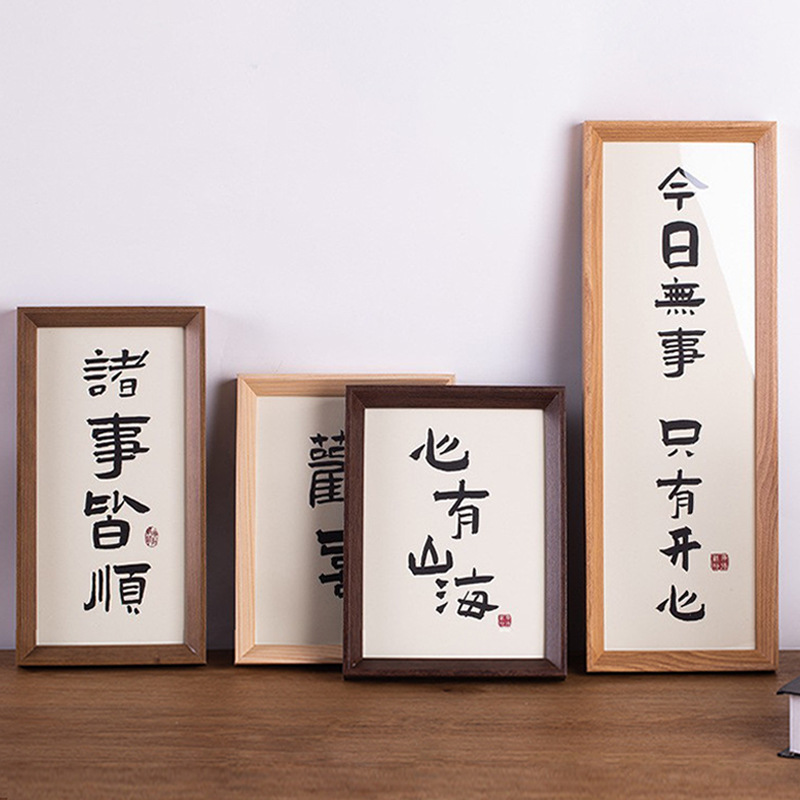 諸事皆順
心有山海
今日無事 只有开心